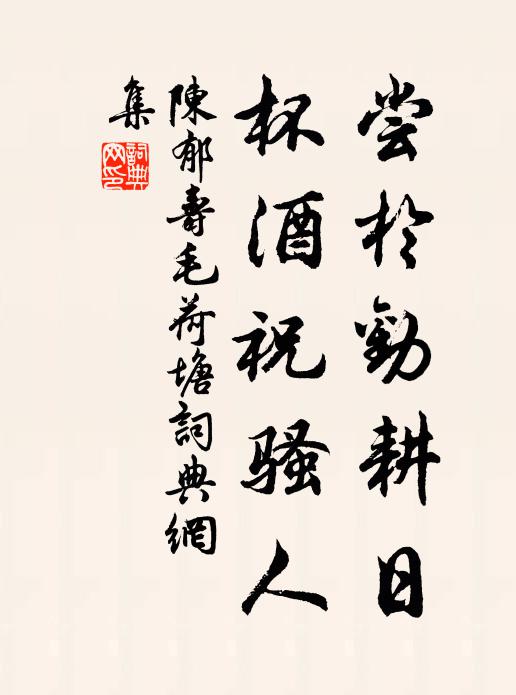 尝於勸耕日
杯酒祝骚人
陳郁壽毛荷塘詞典網
集
詞典
网印